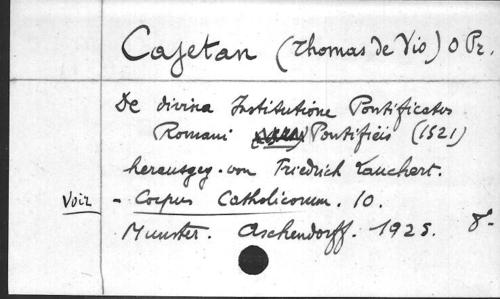 Cajetan (Thomas de Vio) O Pr.
De divina Institutione Pontificatus
Romani Pontificis (1521)
herausgeg. von Friedrich Lauchert.
Voir - Corpus Catholicorum. 10.
Munster. Aschendorff. 1925. 8°